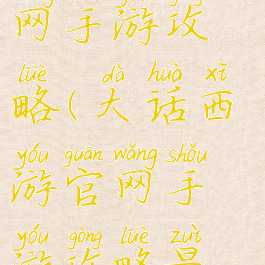 网手游攻
lüè dà huà xī
略(大话西
yóu guān wǎng shǒu
游官网手
yóu gōng lüè zuì
游攻略最